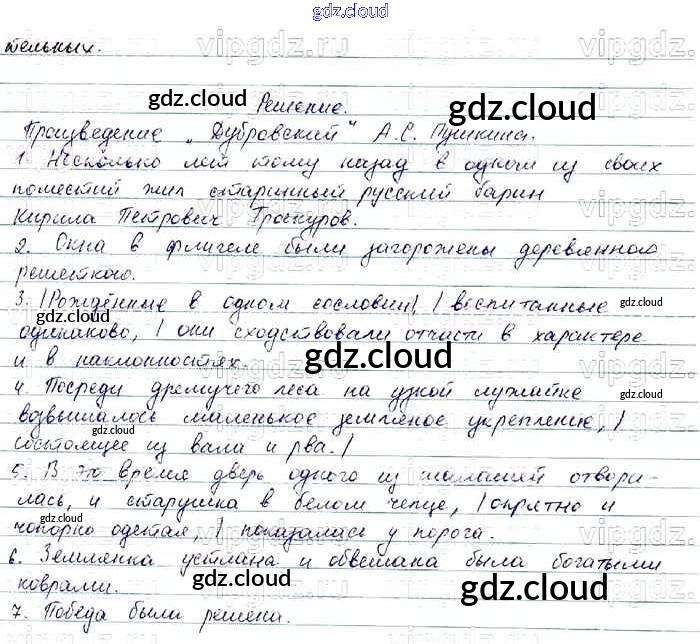 gdz.cloud
тельных.
Решение.
Произведение „Дубровский" А.С. Пушкина.
1. Несколько лет тому назад в одном из своих
поместий жил старинный русский барин
Кирила Петрович Троекуров.
2. Окна в флигеле были загорожены деревянною
решеткою.
3. |Рождённые в одном сословии,| |воспитанные
одинаково, | они сходствовали отчасти в характере
и в наклонностях.
4. Посреди дремучего леса на узкой лужайке
возвышалось маленькое земляное укрепление, |
состоящее из вала и рва. |
5. В это время дверь одного из шалашей отвори-
лась, и старушка в белом чепце, | опрятно и
чопорно одетая, | показалась у порога.
6. Землянка устлана и обвешана была богатыми
коврами.
7. Победа были решена.